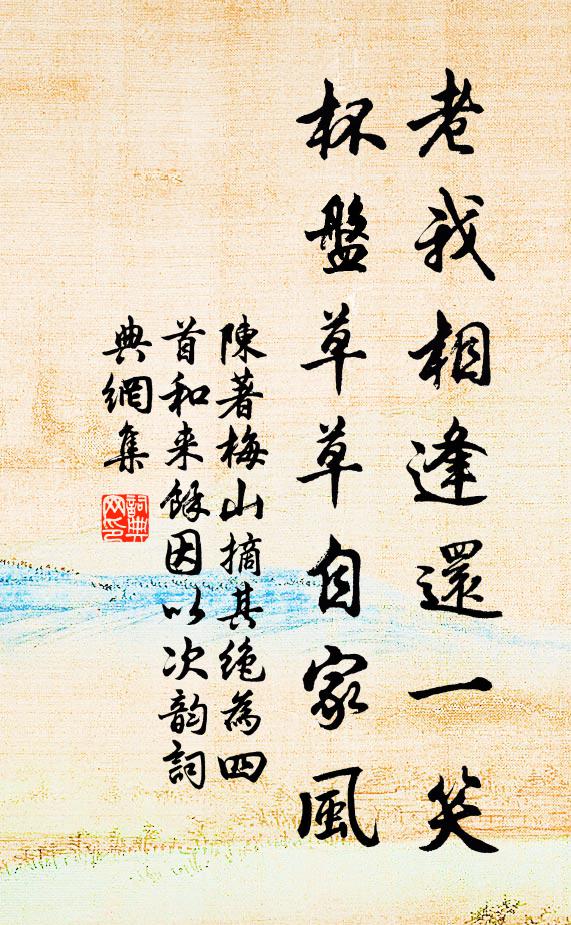 老我相逢還一笑
杯盤草草自家風
陳著梅山摘其絶為四
首和来餘因以次韵詞
典網集
詞典
网印